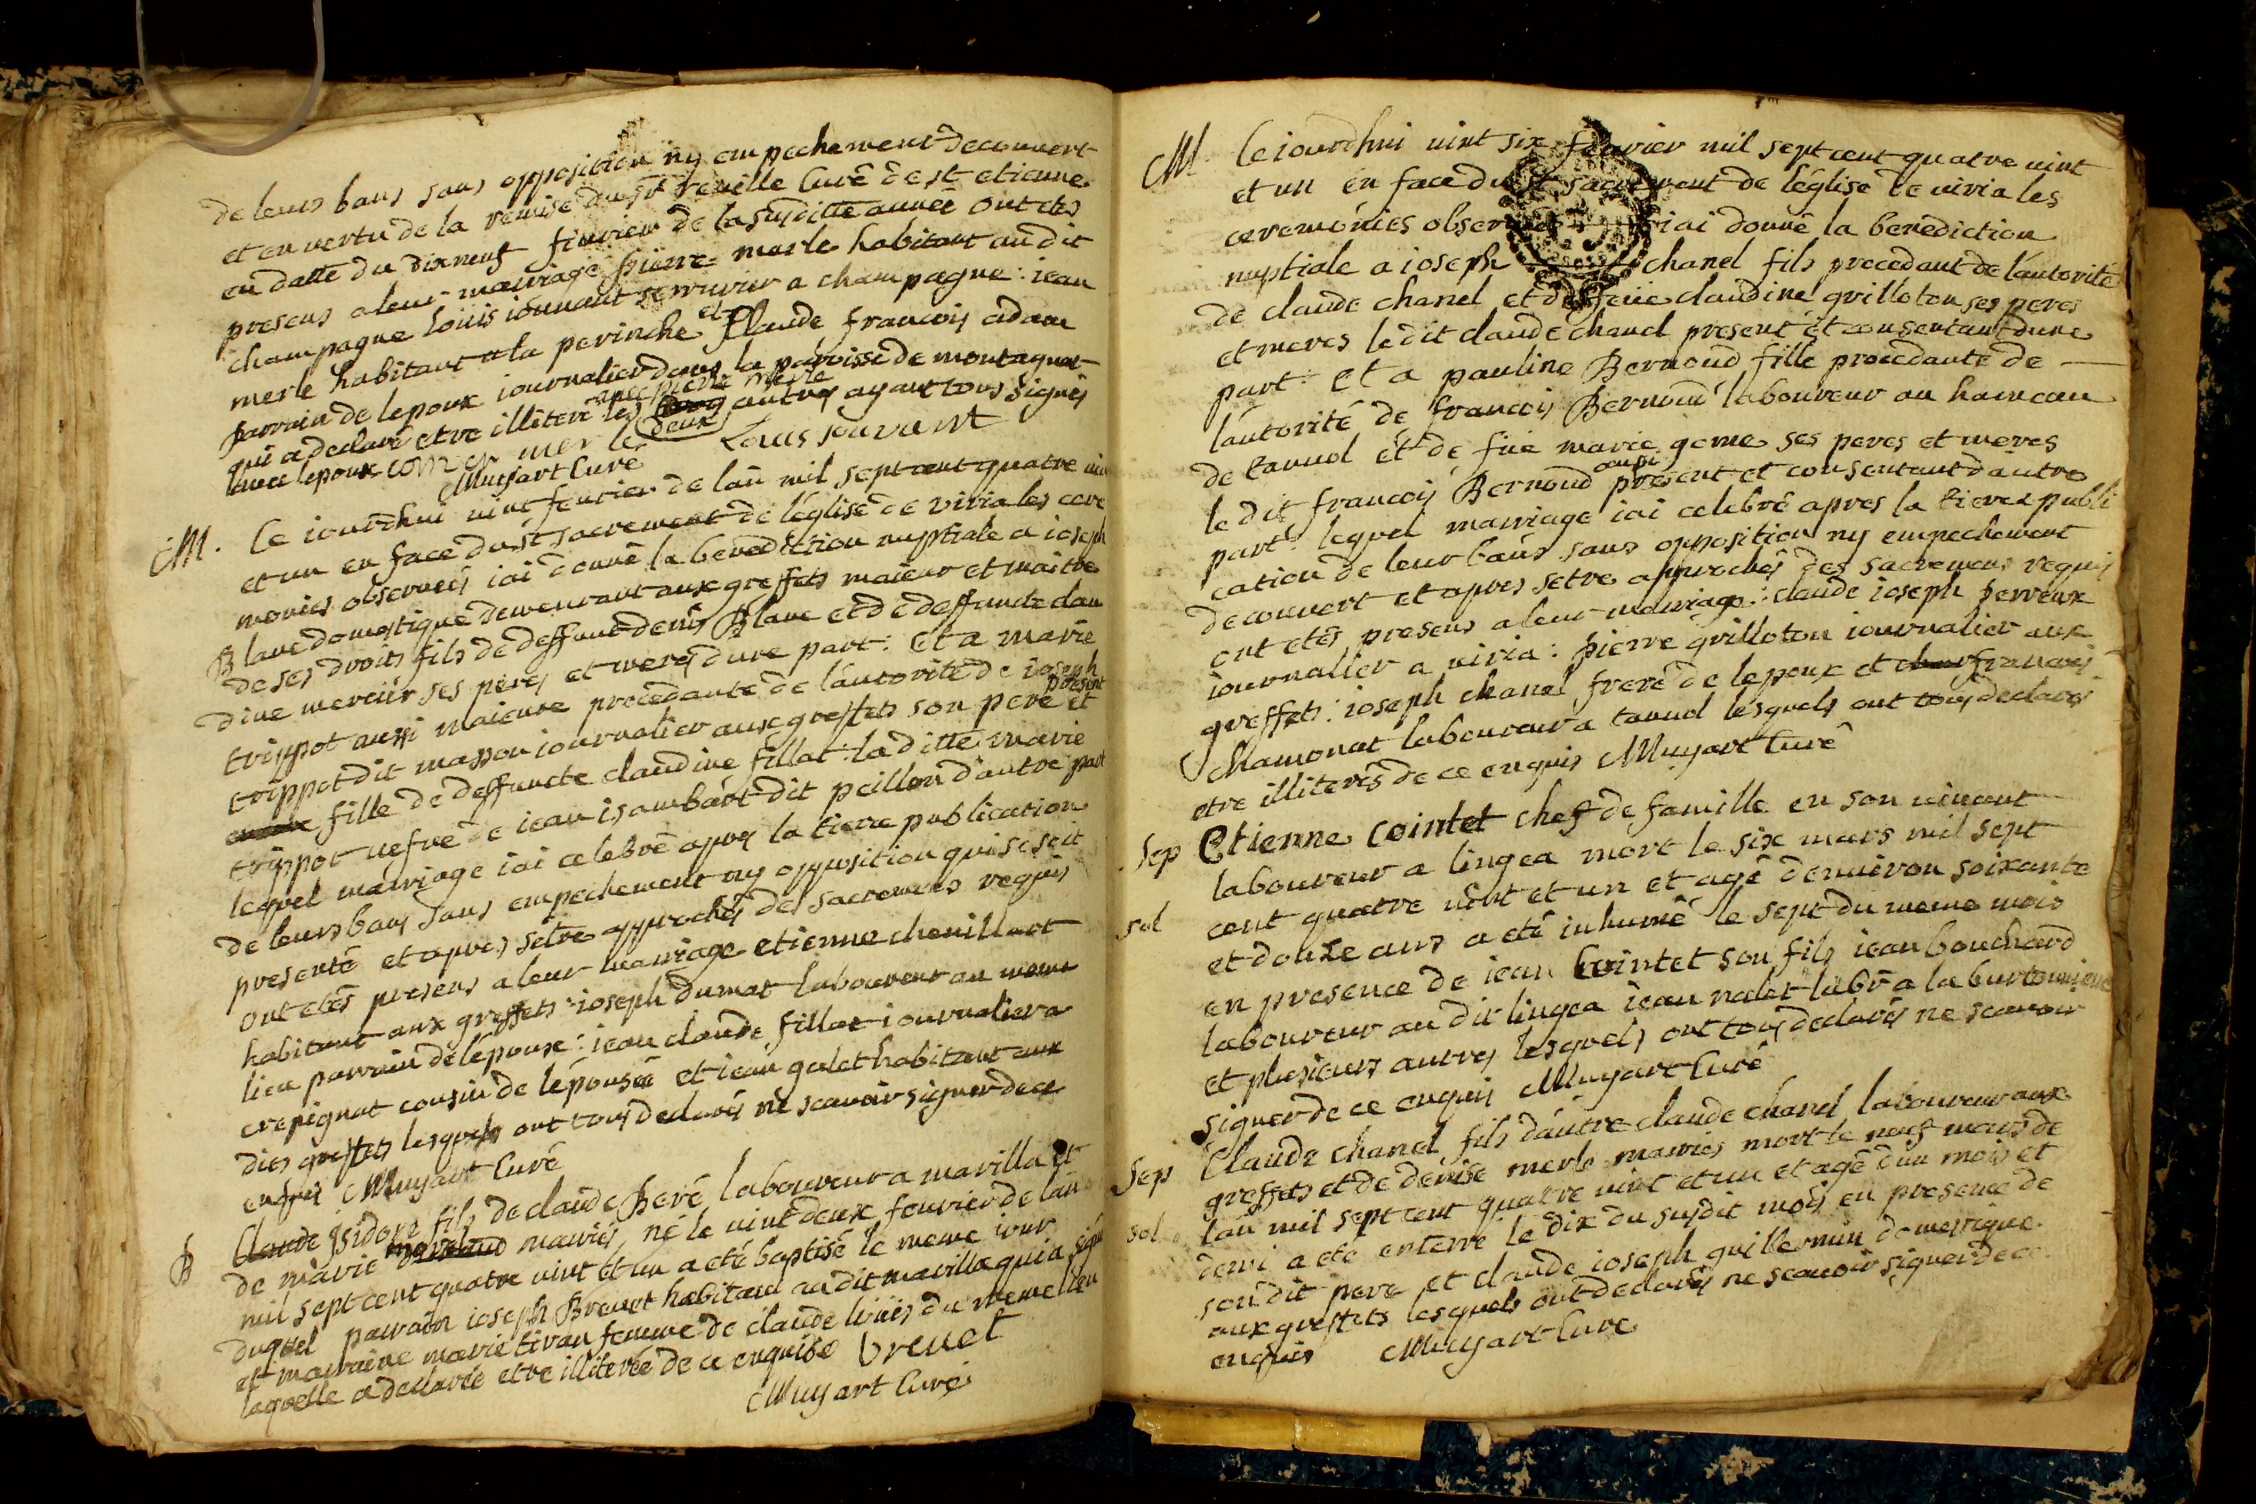 de leurs bans sans opposition ny empechement decouvert
et en vertu de la remise du sr reville Curé de st etienne
en datte du dixneuf fevrier de la susditte année ont etés
presens a leur mariage pierre merle habitant au dit
champagne louis iouvant serrurier a champagne : iean
merle habitant a la perinche et Claude francois adam
parrain de lepoux iournalier dans la paroisse de montagnat
qui a declaré etre illiteré avec pierre merle les deux autres ayant tous signés
avec lepoux merle Louis Jouvant
Muyart Curé
M. Ce iourdhui vint fevrier de lan mil sept cent quatre vint
et un en face du st sacrement de l'église de viria les cere
monies observeés iai donné la benediction nuptiale a ioseph
Blanc domestique demeurant aux greffets maieur et maitre
de ses droits fils de deffunt denis Blanc et de deffuncte clau
dine mercier ses peres et meres dune part : Et a marie
trippot aussi maieure procedante de l'autorité de ioseph
trippot dit masson iournalier aux greffets son pere present et
fille de deffuncte claudine fillat : la ditte marie
trippot vefve de iean isambart dit peillon d'autre part
lequel mariage iai celebré apres la tierce publication
de leurs bans sans empechement ny opposition qui se soit
presenté et apres setre approchés des sacremens requis
ont etés presens a leur mariage etienne chevillart
habitant aux greffets : ioseph dumat laboureur au meme
lieu parrain de lépoux : iean claude fillat iournalier a
crepignat cousin de lépousée et iean galet habitant aux
dits greffets lesquels ont tous declarés ne scavoir signer de ce
enquis Muyart Curé
B Claude Isidore fils de claude Beré laboureur a marilla et
de marie moreland mariés, né le vint deux fevrier de lan
mil sept cent quatre vint et un a eté baptisé le meme iour
duquel parrain ioseph Brevet habitant au dit marilla qui a signé
et marraine marie tivan femme de claude loüis du meme lieu
laquelle a declarée etre illiterée de ce enquise brevet
Muyart Curé
M Ce iourdhui vint six fevrier mil sept cent quatre vint
et un en face du st sacrement de léglise de viria les
ceremonies observeés iai donné la benédiction
nuptiale a ioseph chanel fils procedant de lautorité
de claude chanel et de feüe claudine grilloton ses peres
et meres le dit claude chanel present et consentant dune
part : et a pauline Bernoud fille procedante de
lautorité de francois Bernoud laboureur au hameau
de tanvol et de füe marie gome ses peres et meres
le dit francois Bernoud aussi present et consentant dautre
part : lequel mariage iai celebré apres la tierce publi
cation de leur bans sans opposition ny empechement
decouvert et apres setre approchés des sacremens requis
ont etés presens a leur mariage : claude ioseph perreux
iournalier a viria : pierre grilloton iournalier aux
greffets : ioseph chanel frere de lepoux et francois
Chamonat laboureur a tanvol lesquels ont tous declarés
etre illiterés de ce enquis Muyart Curé
Sep Etienne Cointet chef de famille en son vivant
laboureur a lingea mort le six mars mil sept
sol cent quatre vint et un et agé denviron soixante
et douze ans a eté inhumé le sept du meme mois
en presence de iean Cointet son fils iean bouchard
laboureur au dit lingea iean nalet labr a la
et plusieurs autres lesquels ont tous declarés ne scavoir
signer de ce enquis Muyart Curé
Sep Claude chanel fils dautre claude chanel laboureur aux
greffets et de denise merle mariés mort le neuf mars de
sol lan mil sept cent quatre vint et un et agé dun mois et
demi a eté enterré le dix du susdit mois en presence de
son dit pere et claude ioseph guillermin domestique
aux greffets lesquels ont declarés ne scavoir signer de ce
enquis Muyart Curé